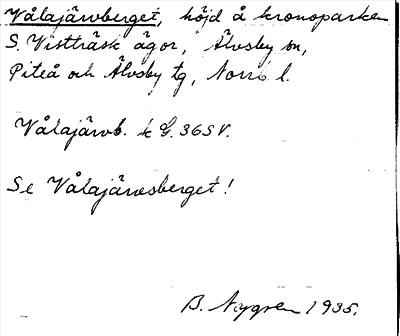 Vålajärvberget, höjd å kronoparken
S. Vistträsk ägor, Älvsby sn,
Piteå och Älvsby tg, Norrb l.
Vålajärvb. k G. 36 SV.
Se Vålajärvesberget!
B. Nygren 1935.